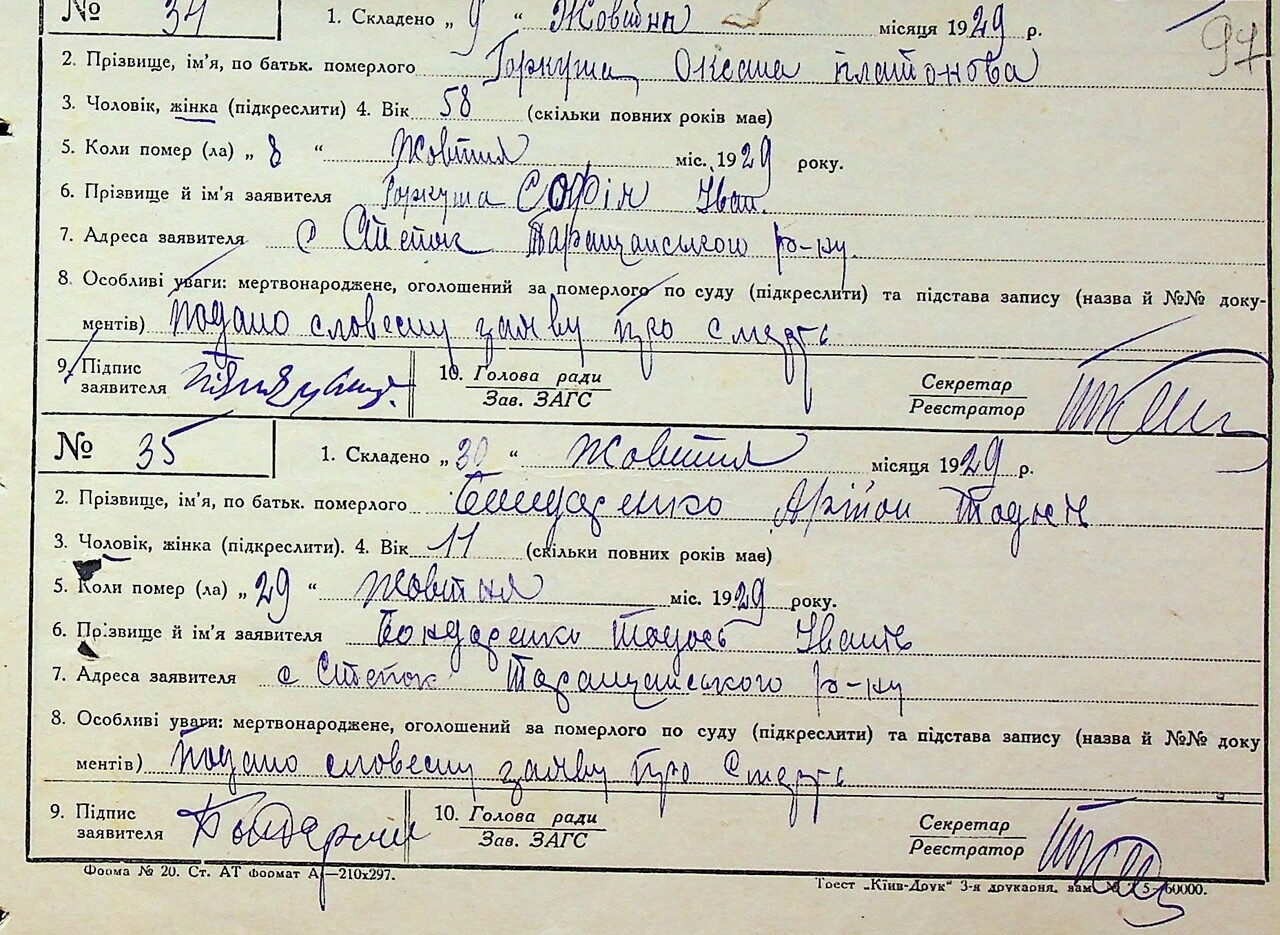 № 34 1. Складено „ 9 “ Жовтня місяця 1929 р. 97
2. Прізвище, ім'я, по батьк. померлого Горкуша Оксана Платонова
3. Чоловік, жінка (підкреслити) 4. Вік 58 (скільки повних років має)
5. Коли помер (ла) „ 8 “ Жовтня міс. 1929 року.
6. Прізвище й ім'я заявителя Горкуша Софія Іван.
7. Адреса заявителя с Степок Таращанського р-ну.
8. Особливі уваги: мертвонароджене, оголошений за померлого по суду (підкреслити) та підстава запису (назва й №№ доку-
ментів) подано словесну заяву про смерть
9. Підпис 10. Голова ради Секретар
заявителя Зав. ЗАГС Реєстратор
№ 35 1. Складено „ 30 “ Жовтня місяця 1929 р.
2. Прізвище, ім'я, по батьк. померлого Бондаренко Тодосів
3. Чоловік, жінка (підкреслити). 4. Вік 11 (скільки повних років має)
5. Коли помер (ла) „ 29 “ Жовтня міс. 1929 року.
6. Прізвище й ім'я заявителя Бондаренко Тодось Іванів
7. Адреса заявителя с Степок Таращанського р-ну
8. Особливі уваги: мертвонароджене, оголошений за померлого по суду (підкреслити) та підстава запису (назва й №№ доку
ментів) подано словесну заяву про смерть
9. Підпис 10. Голова ради Секретар
заявителя Зав. ЗАГС Реєстратор
Форма № 20. Ст. АТ формат А—210х297.
Трест „Київ-Друк“ 3-я друкарня, зам. 60000.